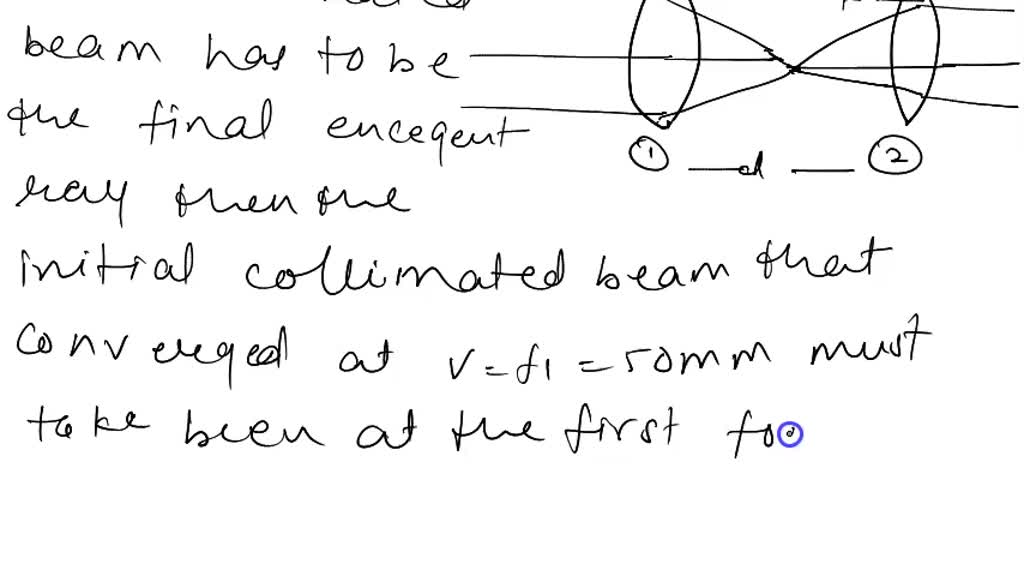 beam has to be
the final encegent
ray then the
① d ②
initial collimated beam that
converged at v=f1 = 50mm must
take been at the first foc